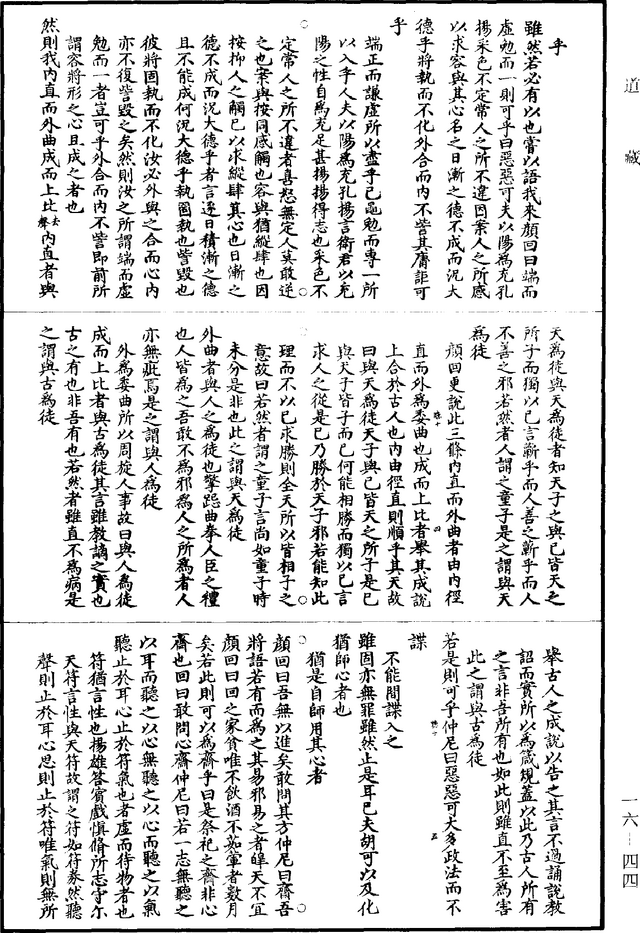 道藏
乎
雖然若必有以也嘗以語我來顏回曰端而
虛勉而一則可乎曰惡惡可夫以陽為充孔
揚采色不定常人之所不違因案人之所感
以求容與其心名之日漸之德不成而況大
德乎將執而不化外合而內不訾其庸詎可
乎
端正而謙虛所以盡乎己黽勉而專一所
以入乎人夫以陽為充孔揚言衛君以充
陽之性自為充足甚揚揚得志也采色不
定常人之所不違者喜怒無定人莫敢逆
之也案與按同感觸也容與猶縱肆也因
按抑人之觸己以求縱肆其心也日漸之
德不成而況大德乎者言逐日積漸之德
且不能成何況大德乎執固執也訾毀也
彼將固執而不化汝必外與之合而心內
亦不復訾毀之矣然則汝之所謂端而虛
勉而一者豈可乎外合而內不訾即前所
謂容將形之心且成之者也
然則我內直而外曲成而上比去聲內直者與
天為徒與天為徒者知天子之與己皆天之
所子而獨以己言蘄乎而人善之蘄乎而人
不善之邪若然者人謂之童子是之謂與天
為徒
顏回更說此三條內直而外曲者由內徑
直而外為委曲也成而上比者舉其成說
上合於古人也內由徑直則順乎其天故
曰與天為徒天子與己皆天之所子是已
與天子皆子而已何能相勝而獨以己言
求人之從是己乃勝於天子邪若能知此
理而不以己求勝則全天所以皆相子之
意故曰若然者謂之童子言尚如童子時
未分是非也此之謂與天為徒
外曲者與人之為徒也擎跽曲拳人臣之禮
也人皆為之吾敢不為邪為人之所為者人
亦無疵焉是之謂與人為徒
外為委曲所以周旋人事故曰與人為徒
成而上比者與古為徒其言雖教謫之實也
古之有也非吾有也若然者雖直不為病是
之謂與古為徒
舉古人之成說以告之其言不過誦說教
詔而實所以為箴規蓋以此乃古人所有
之言非吾所有也如此則雖直不至為害
此之謂與古為徒
若是則可乎仲尼曰惡惡可大多政法而不
諜
不能間諜入之
雖固亦無罪雖然止是耳已夫胡可以及化
猶師心者也
猶是自師用其心者
顏回曰吾無以進矣敢問其方仲尼曰齋吾
將語若有而為之其易邪易之者皥天不宜
顏回曰回之家貧唯不飲酒不茹葷者數月
矣若此則可以為齋乎曰是祭祀之齋非心
齋也回曰敢問心齋仲尼曰若一志無聽之
以耳而聽之以心無聽之以心而聽之以氣
聽止於耳心止於符氣也者虛而待物者也
符猶言性也揚雄答賓戲慎脩所志守尓
天符言性與天符故謂之符如符券然聽
聲則止於耳心思則止於符唯氣則無所
一六-四四